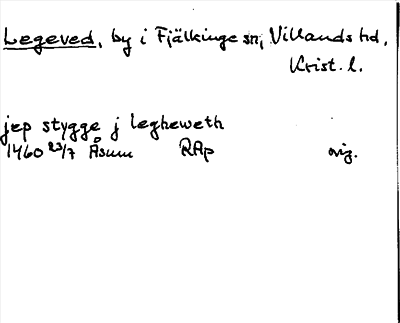 Legeved, by i Fjälkinge sn, Villands hd,
Krist. l.
jep stygge j legheweth
1460 23/7 Åsum RAp orig.